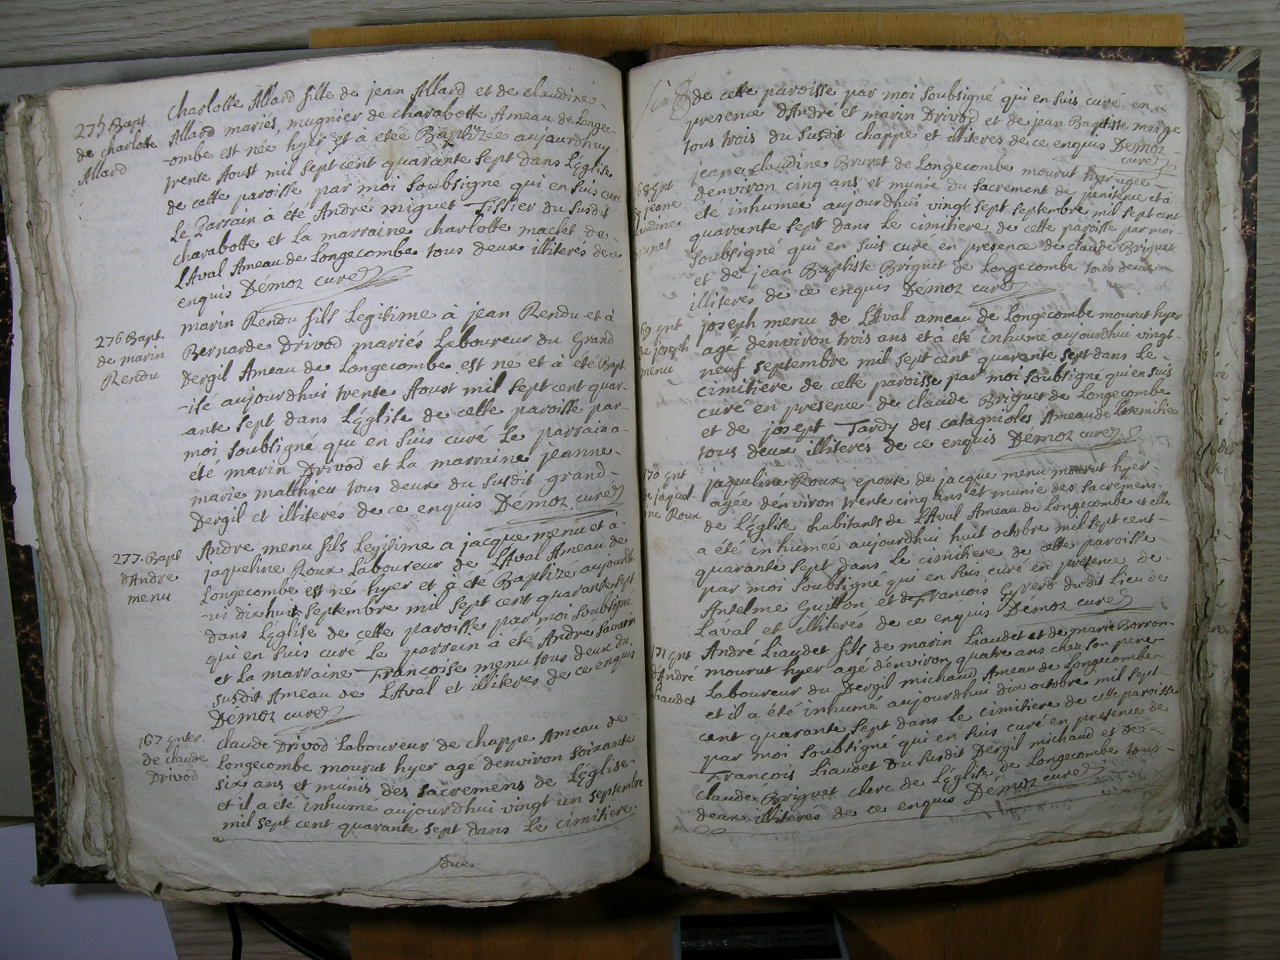 275 Bapt
de charlotte
Allard
charlotte Allard fille de jean Allard et de claudine
Allard mariés, mugnier de charabotte Ameau de Longec-
-ombe est née hyer et à etéé Baptizée aujourdhuy
trente Aoust mil sept cent quarante sept dans L'Eglise
de cette paroisse par moi soubsigné qui en suis curé
Le parrain à été André miguet Tissier du susdit
charabotte et La marraine charlotte maclet de
L'Aval Ameau de Longecombe tous deux illiterés de ce
enquis Démoz curé
276 Bapt.
de marin
Rendu
marin Rendu fils Legitime à jean Rendu et à
Bernarde Drivod mariés Laboureur du Grand
Dergil Ameau de Longecombe est né et à été Bapt-
-isé aujourdhui trente Aoust mil sept cent quar-
-ante sept dans L'Eglise de cette paroisse par
moi soubsigné qui en suis curé Le parrain a
été marin Drivod et La marraine jeanne
marie matthieu tous deux du susdit grand
Dergil et illiteres de ce enquis Démoz curé
277. Bapt
d'Andre
menu
Andre menu fils Legitime a jacque menu et à
jaqueline Roux Laboureur de L'Aval Ameau de
Longecombe est né hyer et à été Baptizé aujourdh-
-ui dix huit septembre mil sept cent quarante sept
dans L'Eglise de cette paroisse par moi soubsigné
qui en suis curé Le parrein à été André savarin
et La marraine Francoise menu tous deux du
susdit Ameau de L'Aval et illiteres de ce enquis
Démoz curé
167 Entér
de claude
Drivod
claude Drivod Laboureur de chappe Ameau de
Longecombe mourut hyer agé denviron soixante
six ans et munis des sacremens de L'Eglise
et il a été inhumé aujourdhui vingt un septembre
mil sept cent quarante sept dans Le cimitiere
de cette paroisse par moi soubsigné qui en suis curé en
presence d'André et marin Drivod et de jean Baptiste
tous trois du susdit chappe et illiteres de ce enquis Démoz
curé
168 Ent
de jeane
claudine
Brunet
jeane claudine Brunet de Longecombe mourut hyer agée
denviron cinq ans et munie du sacrement de penitence et à
été inhumée aujourdhui vingt sept septembre mil sept cent
quarante sept dans Le cimitiere de cette paroisse par moi
soubsigné qui en suis curé en presence de claude Briguet
et de jean Baptiste Briguet de Longecombe tous deux
illiteres de ce enquis Démoz curé
169 Ent
de joseph
menu
joseph menu de L'Aval ameau de Longecombe mourut hyer
agé denviron trois ans et à été inhumé aujourdhui vingt
neuf septembre mil sept cent quarante sept dans Le
cimitiere de cette paroisse par moi soubsigné qui en suis
curé en presence de claude Briguet de Longecombe
et de josept Tardy des catagnoles Ameau de
tous deux illiterés de ce enquis Démoz curé
170 Ent
de jaqueli-
ne Roux
jaqueline Roux epouse de jacque menu mourut hyer
agée denviron trente cinq ans et munie des sacremens
de L'Eglise habitants de L'Aval Ameau de Longecombe et elle
a été inhumée aujourdhui huit octobre mil sept cent
quarante sept dans Le cimitiere de cette paroisse
par moi soubsigné qui en suis curé en presence de
Antelme Guitton et de François dudit Lieu de
Laval et illiteres de ce enquis Démoz curé
171 Ent
d'André
Liaudet
André Liaudet fils de marin Liaudet et de marie Borron
mourut hyer agé d'environ quatre ans chez son pere
Laboureur du Dergil michaud Ameau de Longecombe
et il a été inhumé aujourdhui dix octobre mil sept
cent quarante sept dans Le cimitiere de cette paroisse
par moi soubsigné qui en suis curé en presence de
François Liaudet Du susdit Dergil michaud et de
claude Briguet clerc de L'Eglise de Longecombe tous
deux illiterés de ce enquis Démoz curé